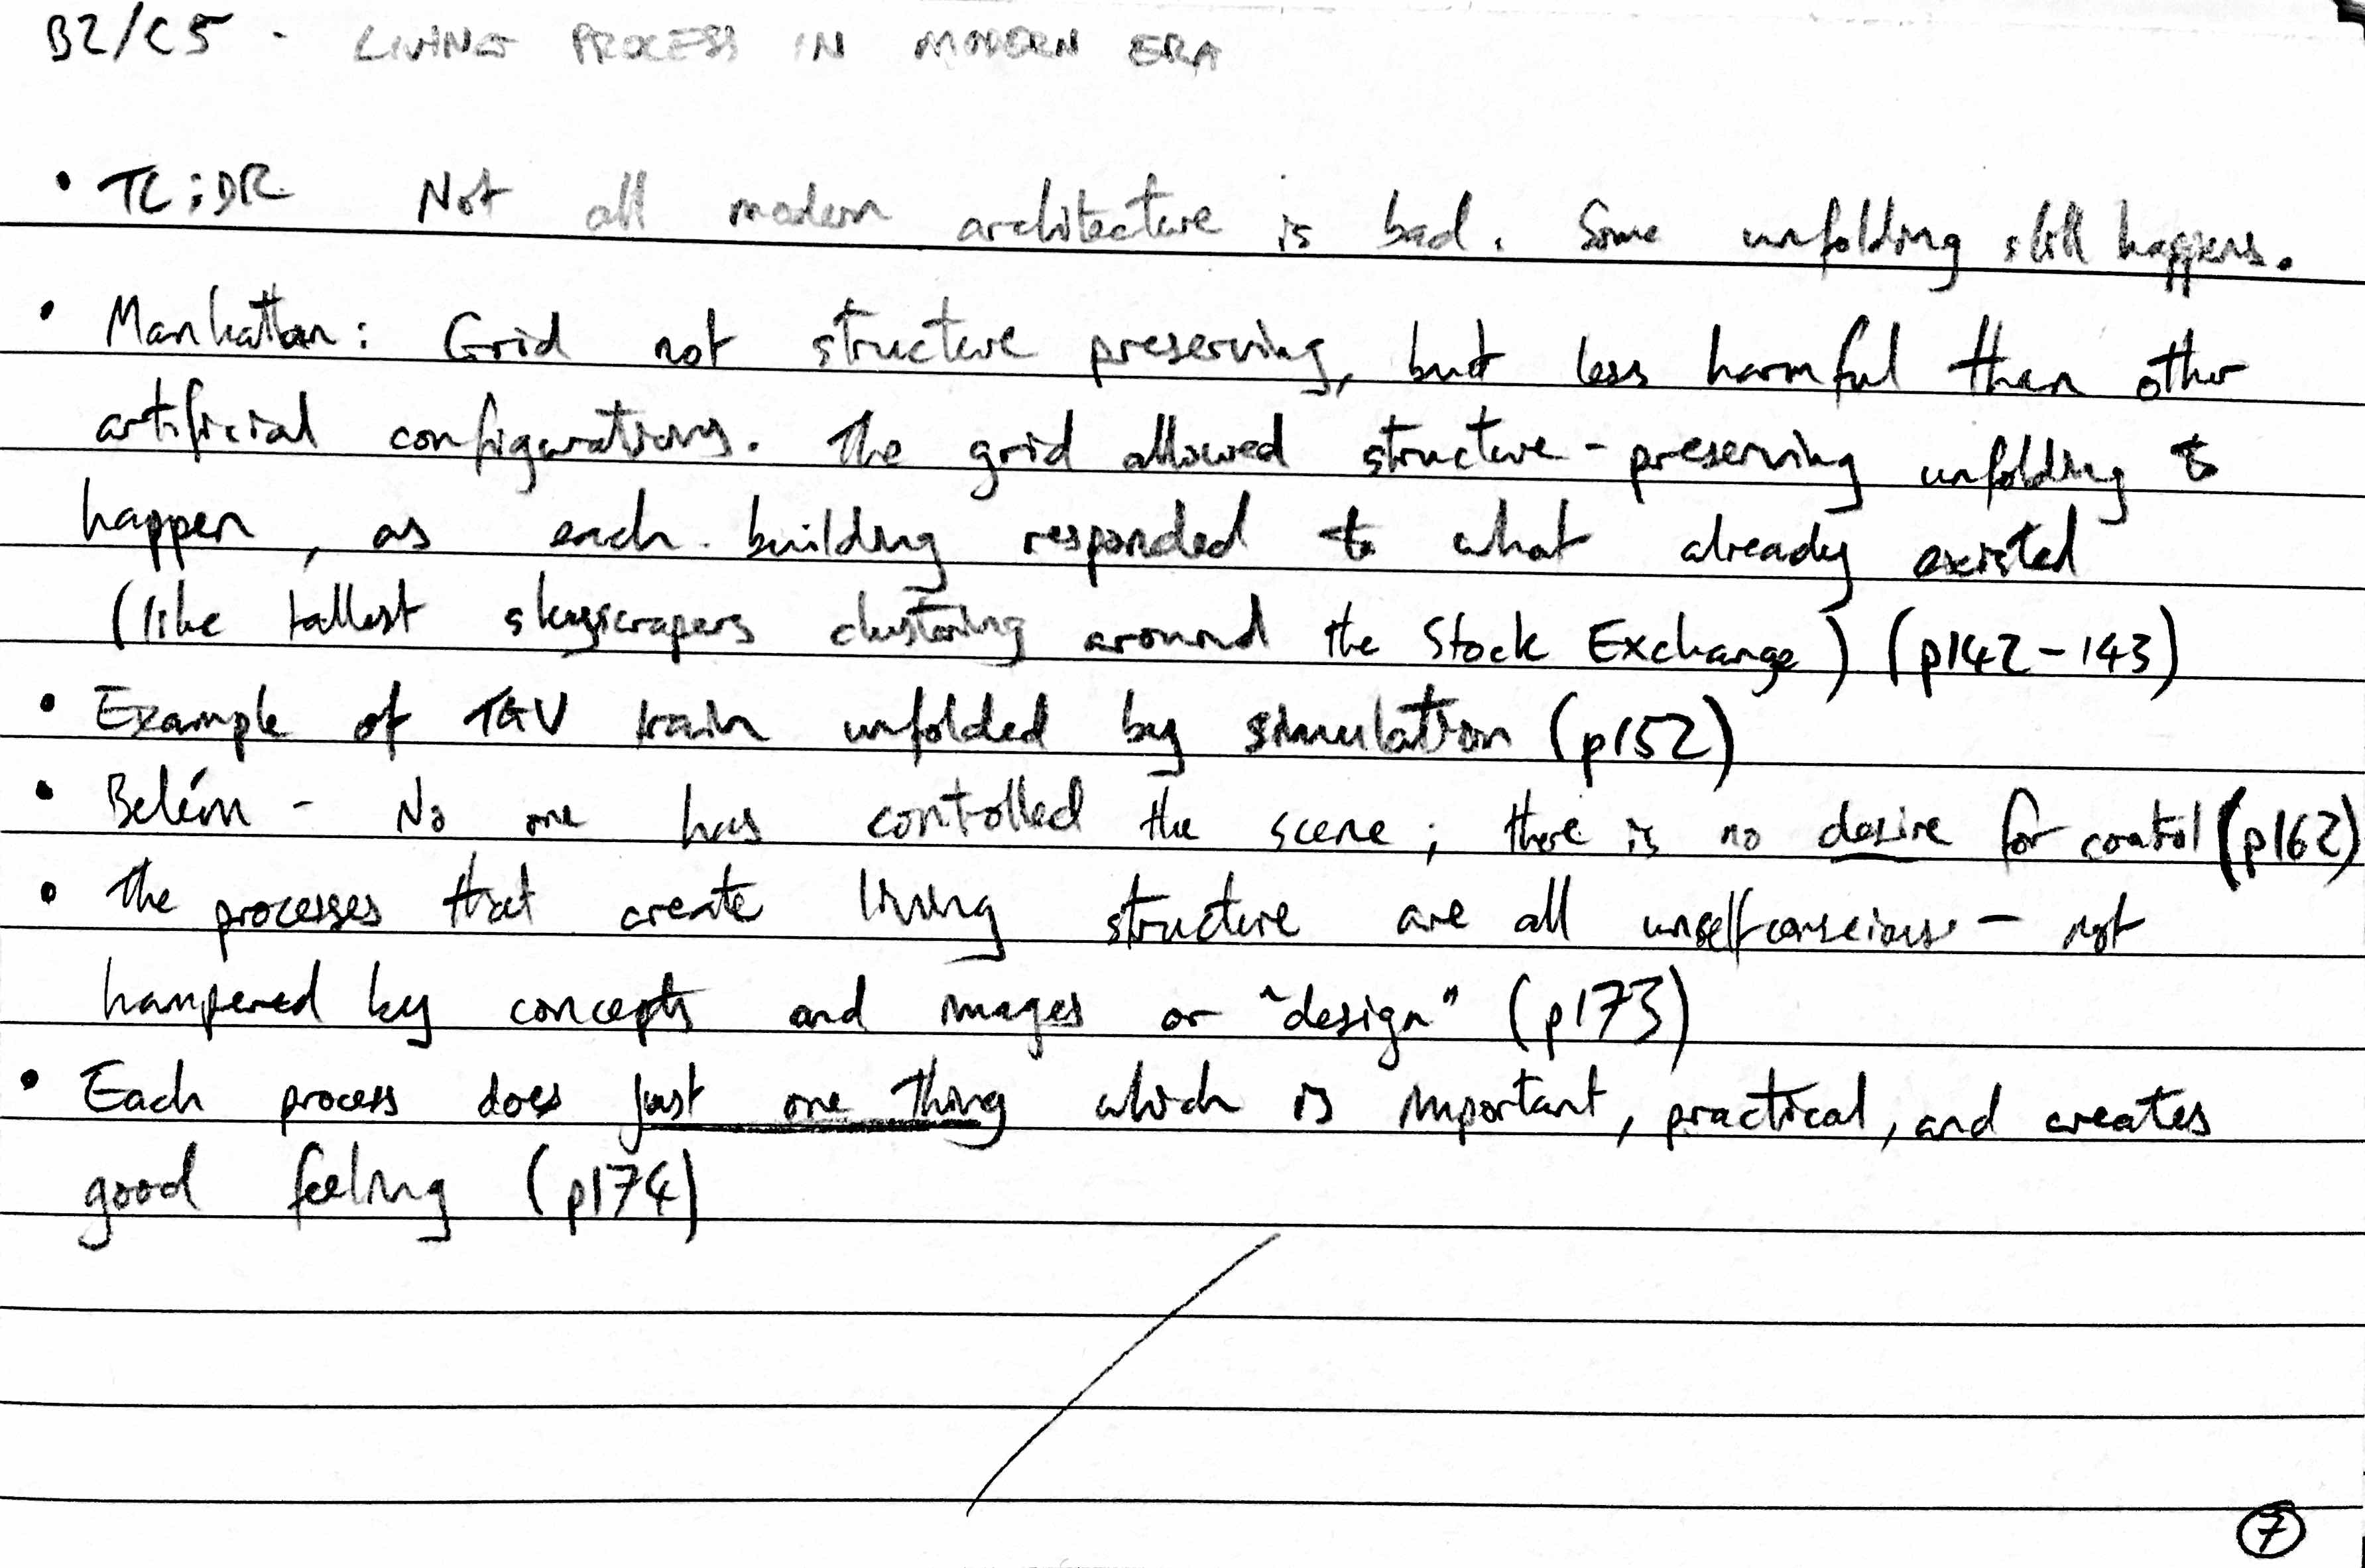 B2/C5 - LIVING PROCESS IN MODERN ERA
• TL;DR Not all modern architecture is bad. Some unfolding still happens.
• Manhattan: Grid not structure preserving, but less harmful than other
artificial configurations. The grid allowed structure-preserving unfolding to
happen, as each building responded to what already existed
(like tallest skyscrapers clustering around the Stock Exchange) (p142-143)
• Example of TGV train unfolded by simulation (p152)
• Belém - No one has controlled the scene; there is no desire for control (p162)
• The processes that create living structure are all unselfconscious - not
hampered by concepts and images or "design" (p173)
• Each process does just one thing which is important, practical, and creates
good feeling (p174)
7